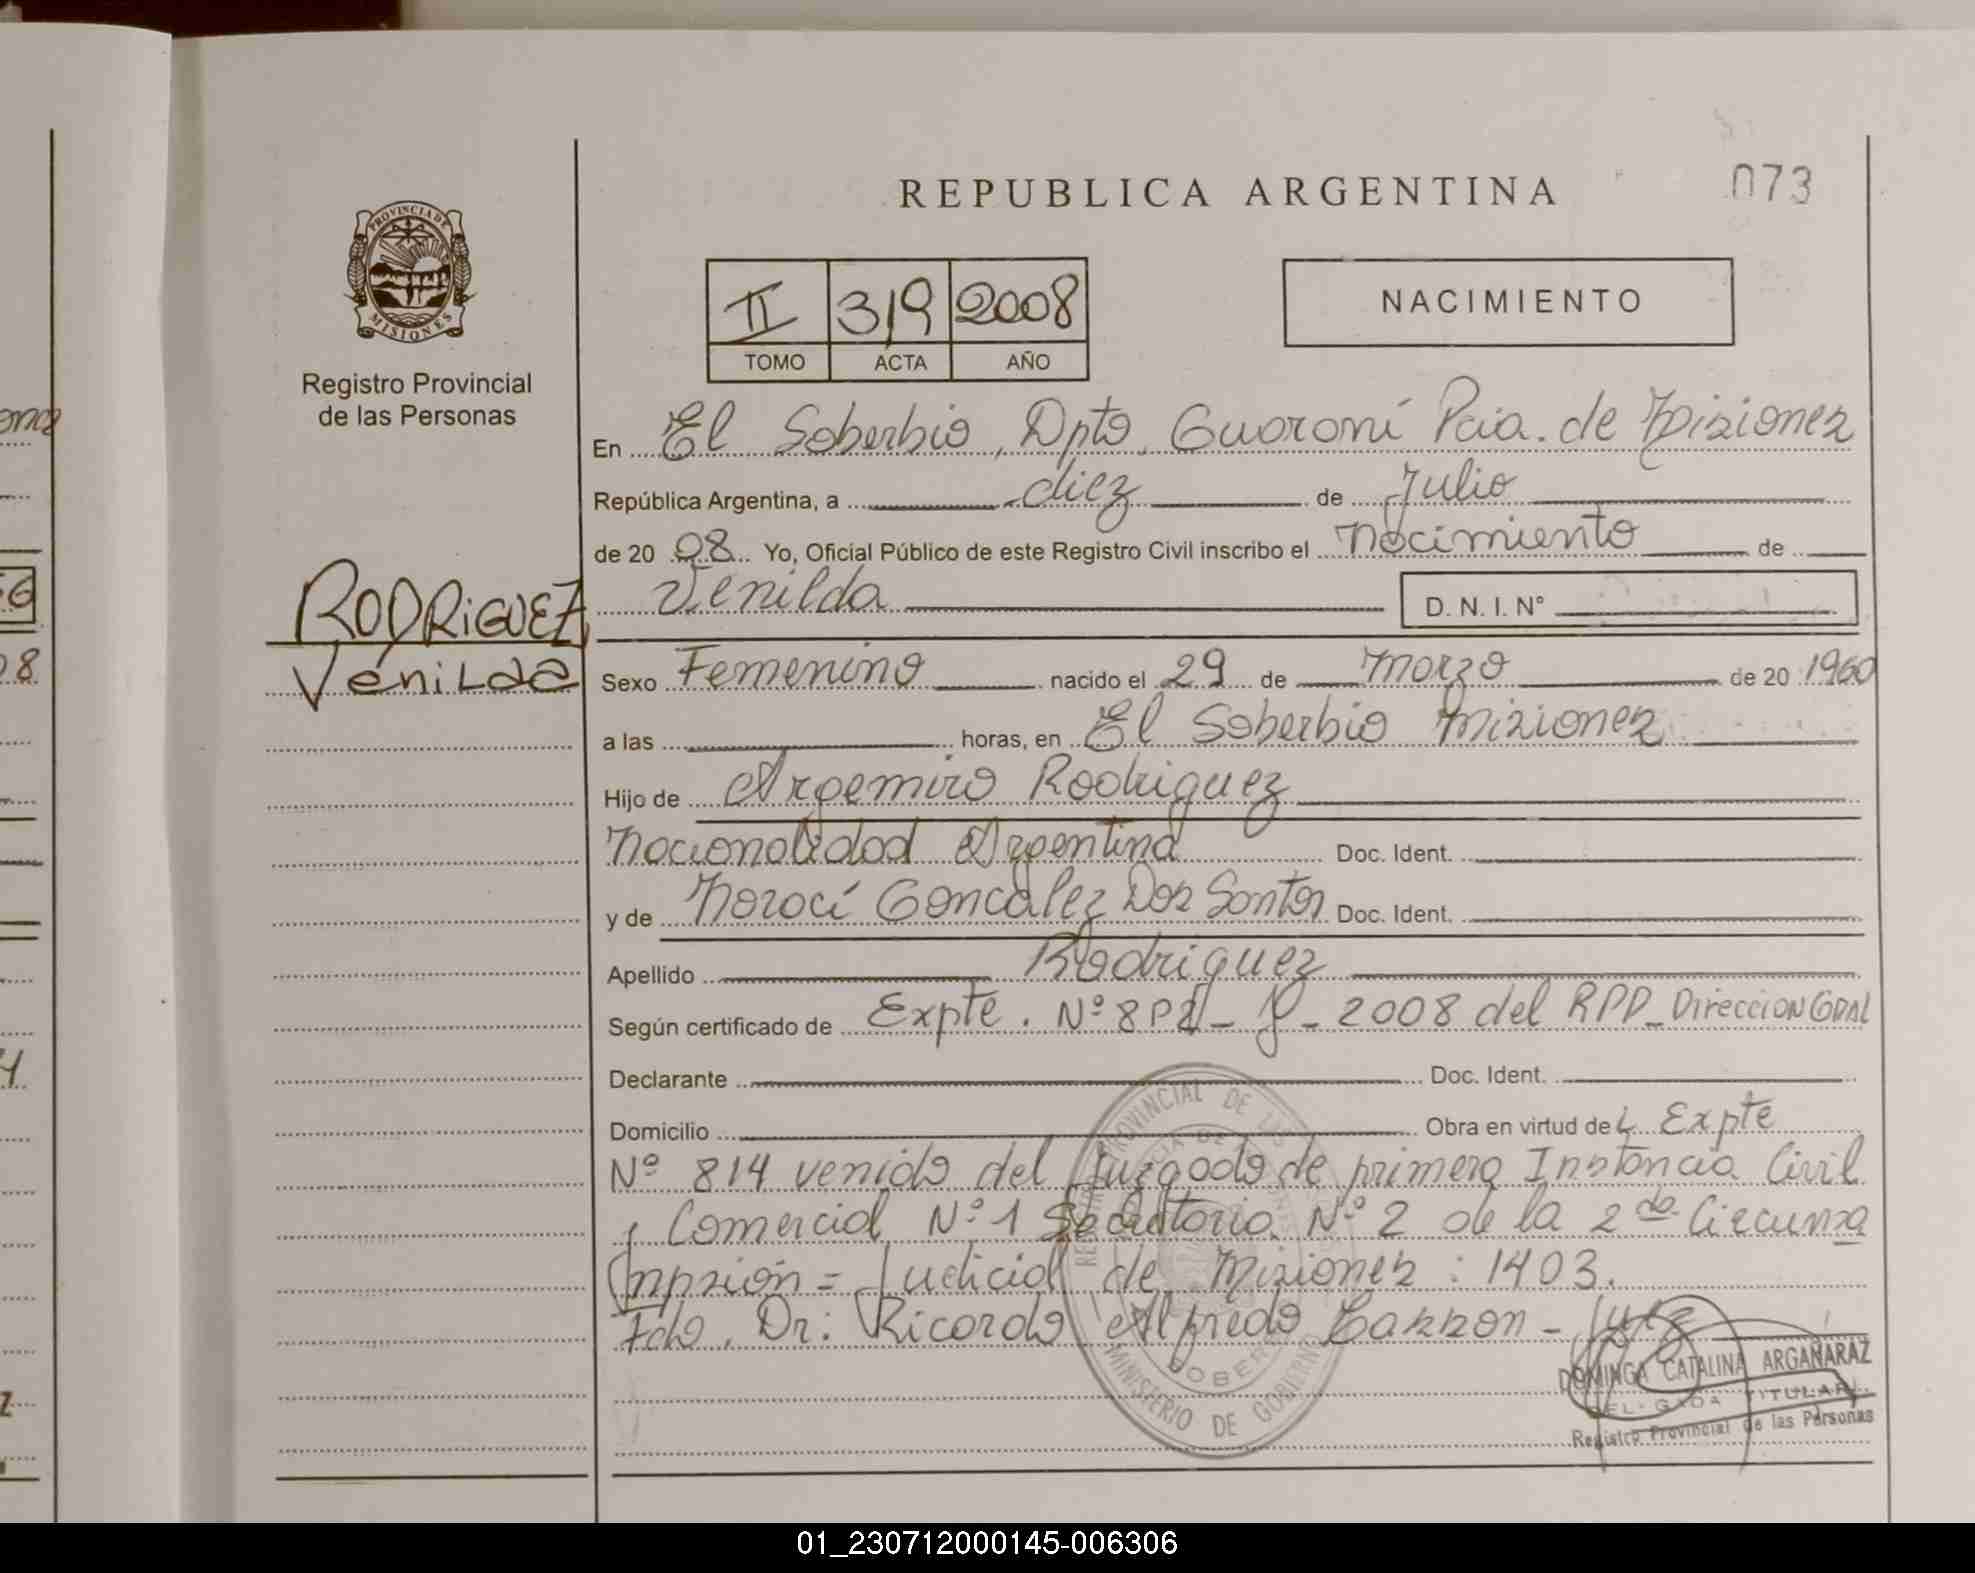 REPUBLICA ARGENTINA
073
PROVINCIA DE
MISIONES
Registro Provincial
de las Personas
II 319 2008
TOMO ACTA AÑO
NACIMIENTO
En El Soberbio, Dpto. Guaraní Pcia. de Misiones
República Argentina, a diez de Julio
de 20 08 Yo, Oficial Público de este Registro Civil inscribo el Nacimiento de
Venilda D. N. I. Nº
RODRIGUEZ
Venilda
Sexo Femenino nacido el 29 de Marzo de 20 1960
a las horas, en El Soberbio Misiones
Hijo de Argemiro Rodriguez
Nacionalidad Argentina Doc. Ident.
y de Doc. Ident.
Apellido Rodriguez
Según certificado de Expte. Nº 2008 del RPD_Direccion
Declarante Doc. Ident.
Domicilio Obra en virtud del Expte
Nº 814 venido del Juzgado de primera Instancia Civil
y Comercial Nº 1 Secretaria Nº 2 de la 2da Circuns
Judicial de Misiones : 1403.
Fdo. Dr: Ricardo Alfredo - Juez
DOMINGA CATALINA ARGAÑARAZ
DELEGADA TITULAR
Registro Provincial de las Personas
MINISTERIO DE GOBIERNO
01_230712000145-006306